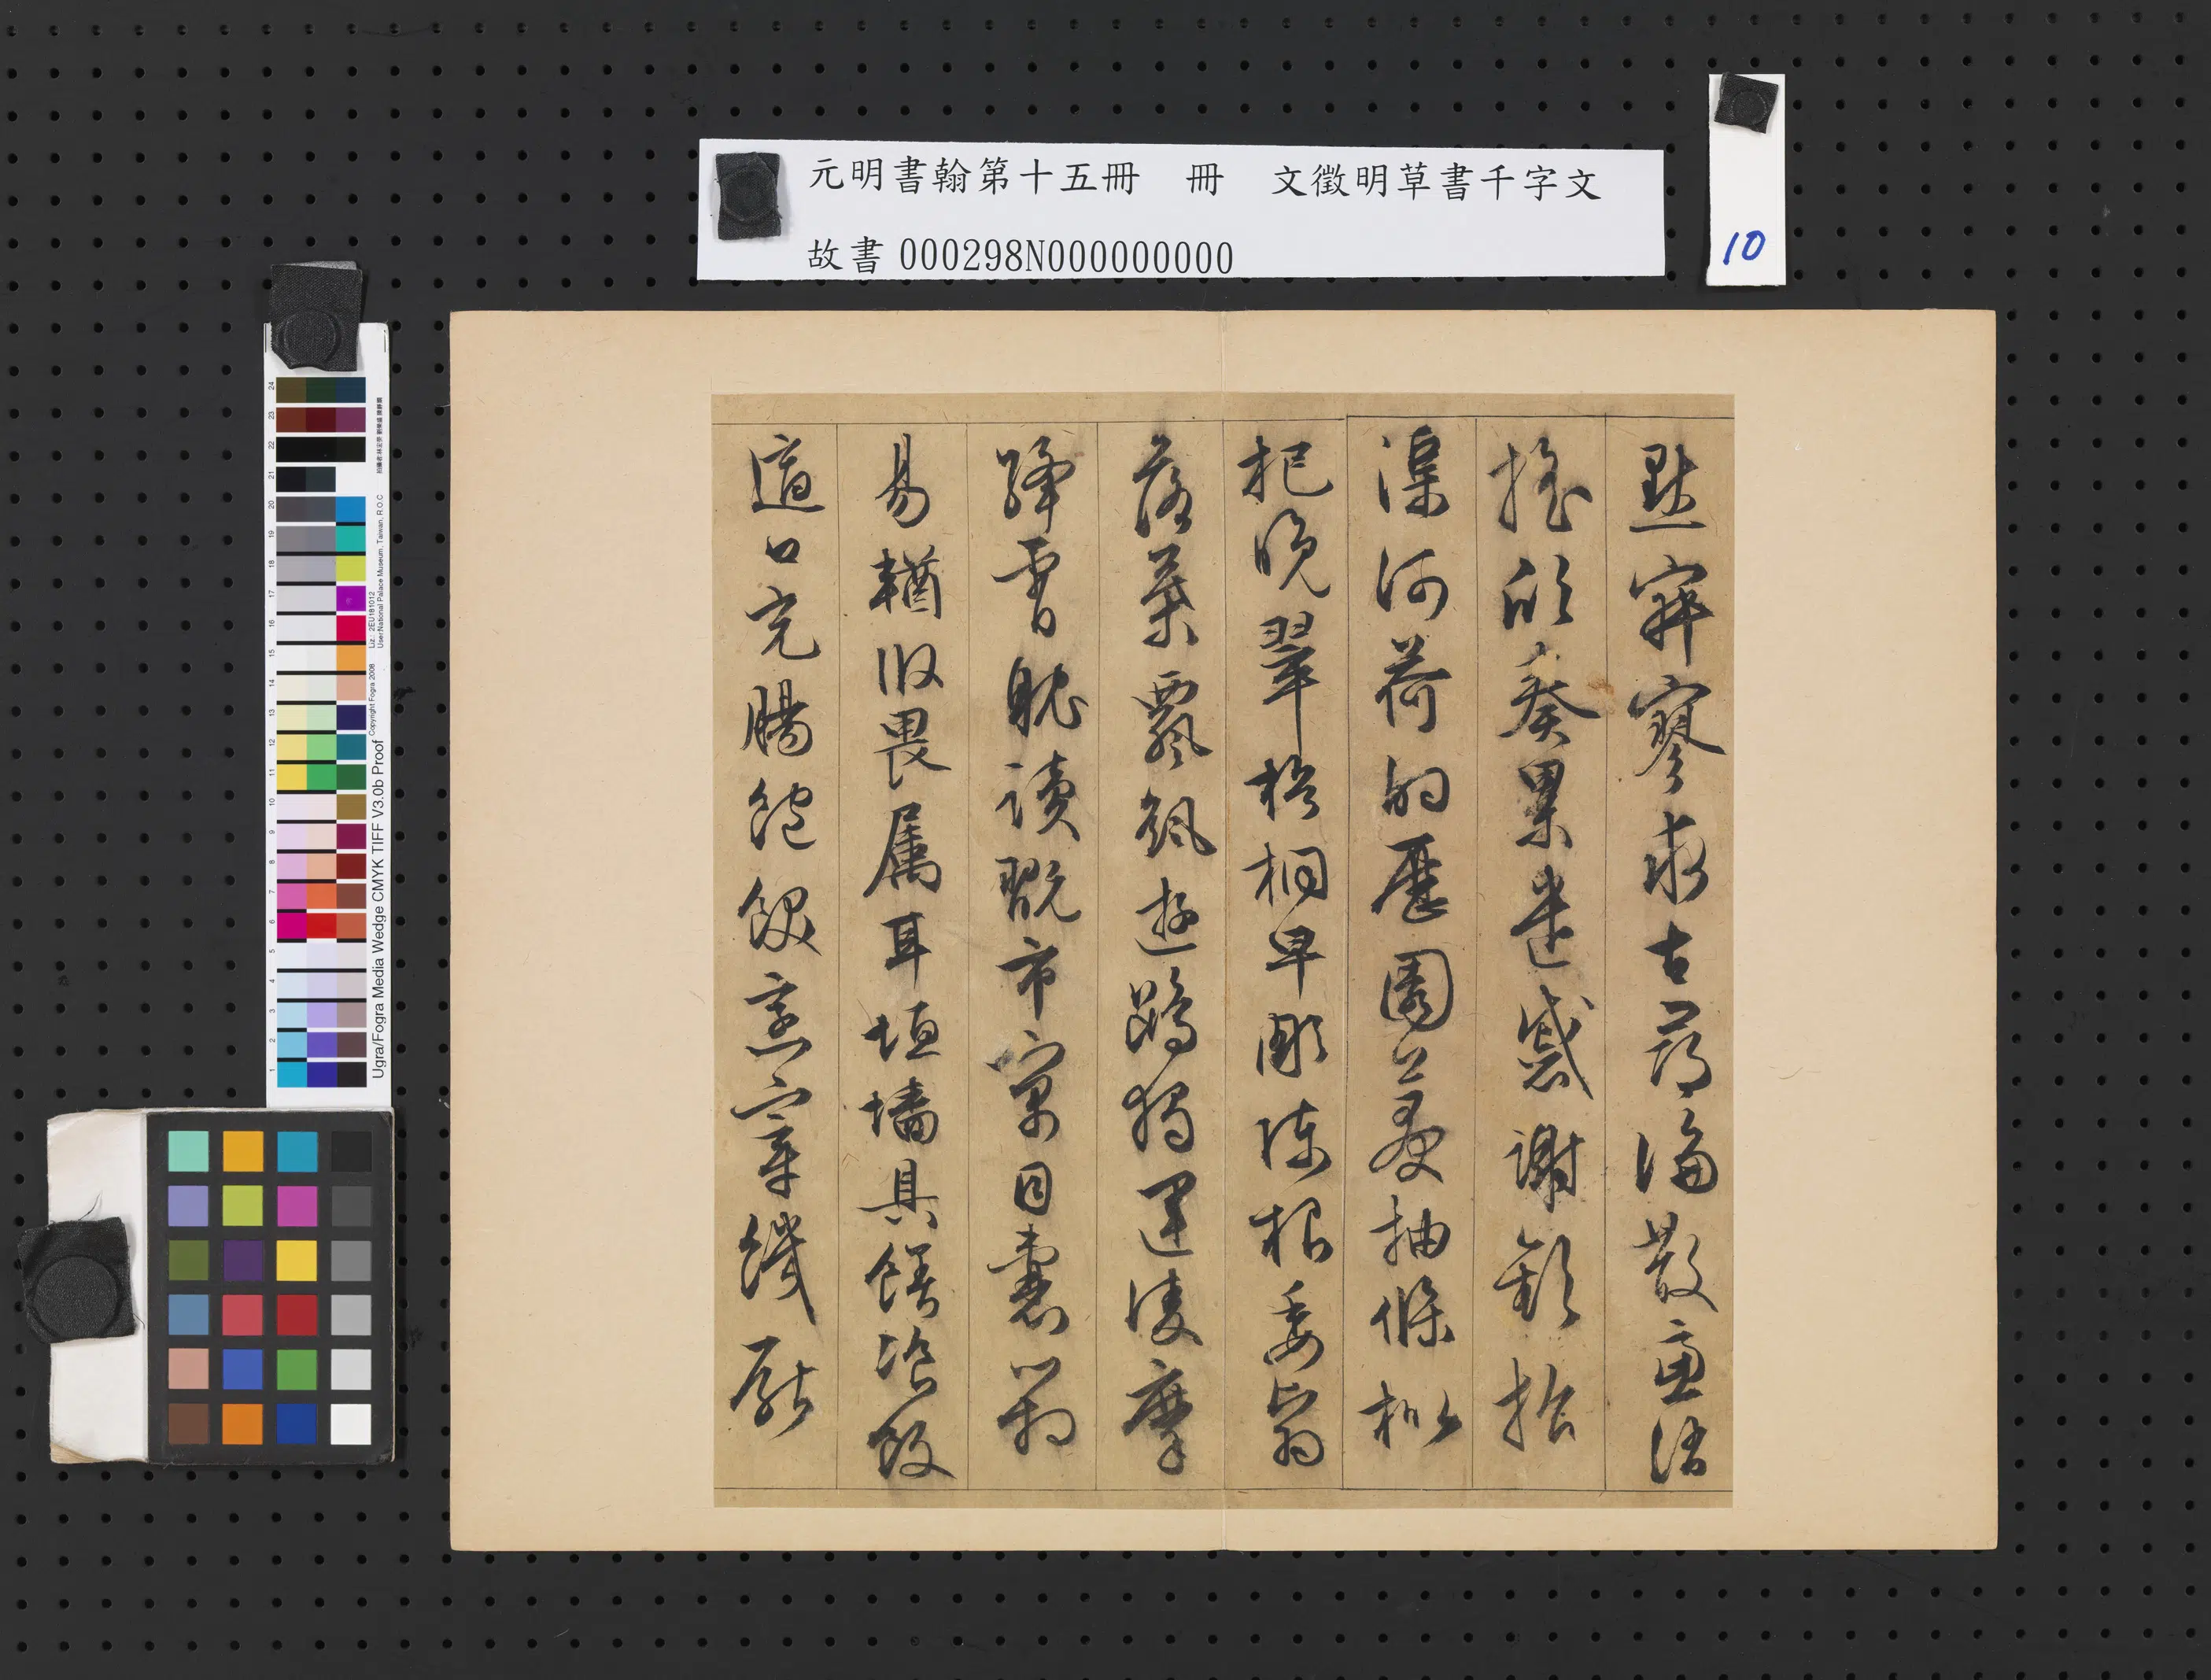 元明書翰第十五冊　冊　文徵明草書千字文
故書 000298N000000000
10
默寂寥求古尋論散慮消
搖欣奏累遣慼謝歡招
渠河荷的歷園莽抽條枇
杷晚翠梧桐早彫陳根委翳
落葉飄颻遊鵾獨運凌摩
絳霄耽讀翫市寓目囊箱
易輶攸畏属耳垣墻具膳飡飯
適口充腸飽飫烹宰饑厭
Ugra/Fogra Media Wedge CMYK TIFF V3.0b Proof
Copyright Fogra 2008
Liz.: 2EU181012
User:National Palace Museum, Taiwan, R.O.C